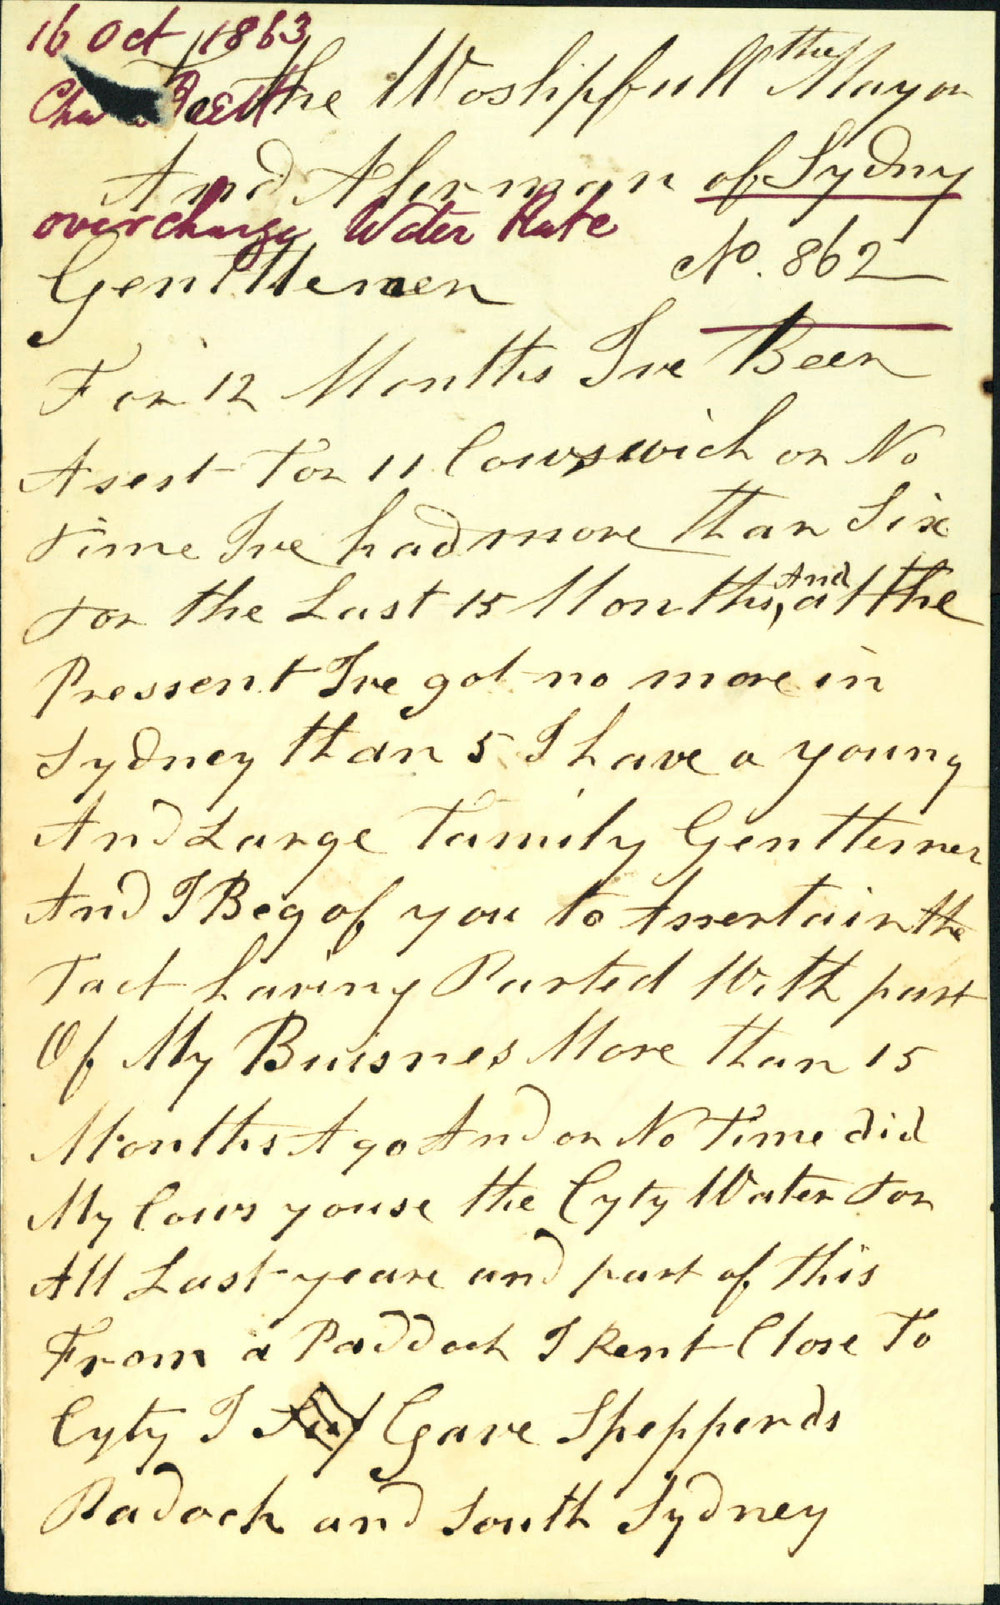 16 Oct 1863
To the Woshipfull the Mayor
And Alerman of Sydny
overcharge Water Rate
No. 862
Genttlemen
For 12 Months Ive Been
Asest For 11 Cows wich on No
Time Ive had more than Six
For the Last 15 Months, And at the
Pressent Ive got no more in
Sydney than 5 I have a young
And Large Family Genttemen
And I Beg of you to Assertain the
Fact having Parted With part
Of My Buisnes More than 15
Months Ago And on No Time did
My Cows youse the Cyty Water For
All Last yeare and part of this
From a Paddock I Rent Close To
Cyty I Gave Shepperds
Padock and South Sydney